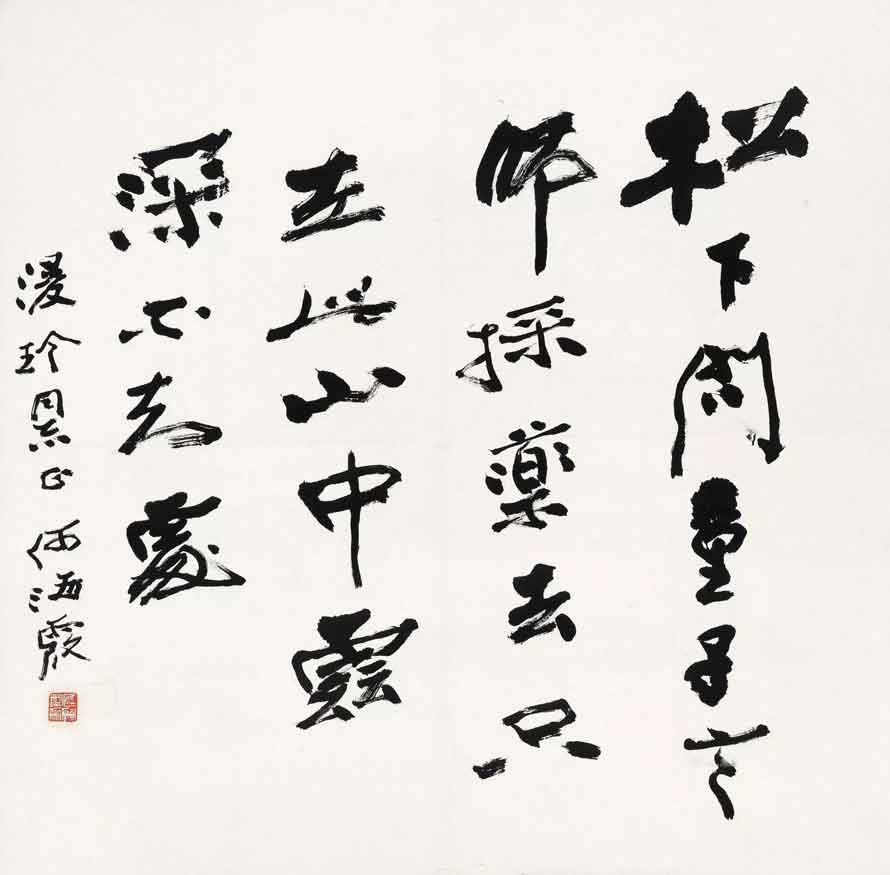 松下問童子言
師採藥去只
在此山中雲
深不知處
漫玲同志正 何海霞